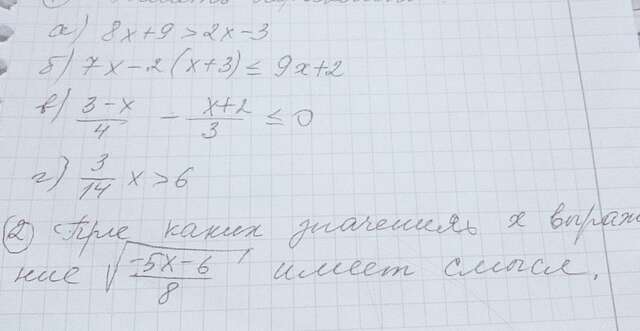 а) 8x+9>2x-3
б) 7x-2(x+3)≤9x+2
в) (3-x)/4 - (x+2)/3 ≤ 0
г) 3/14 x>6
② При каких значениях x выраже
ние √((-5x-6)/8) имеет смысл.